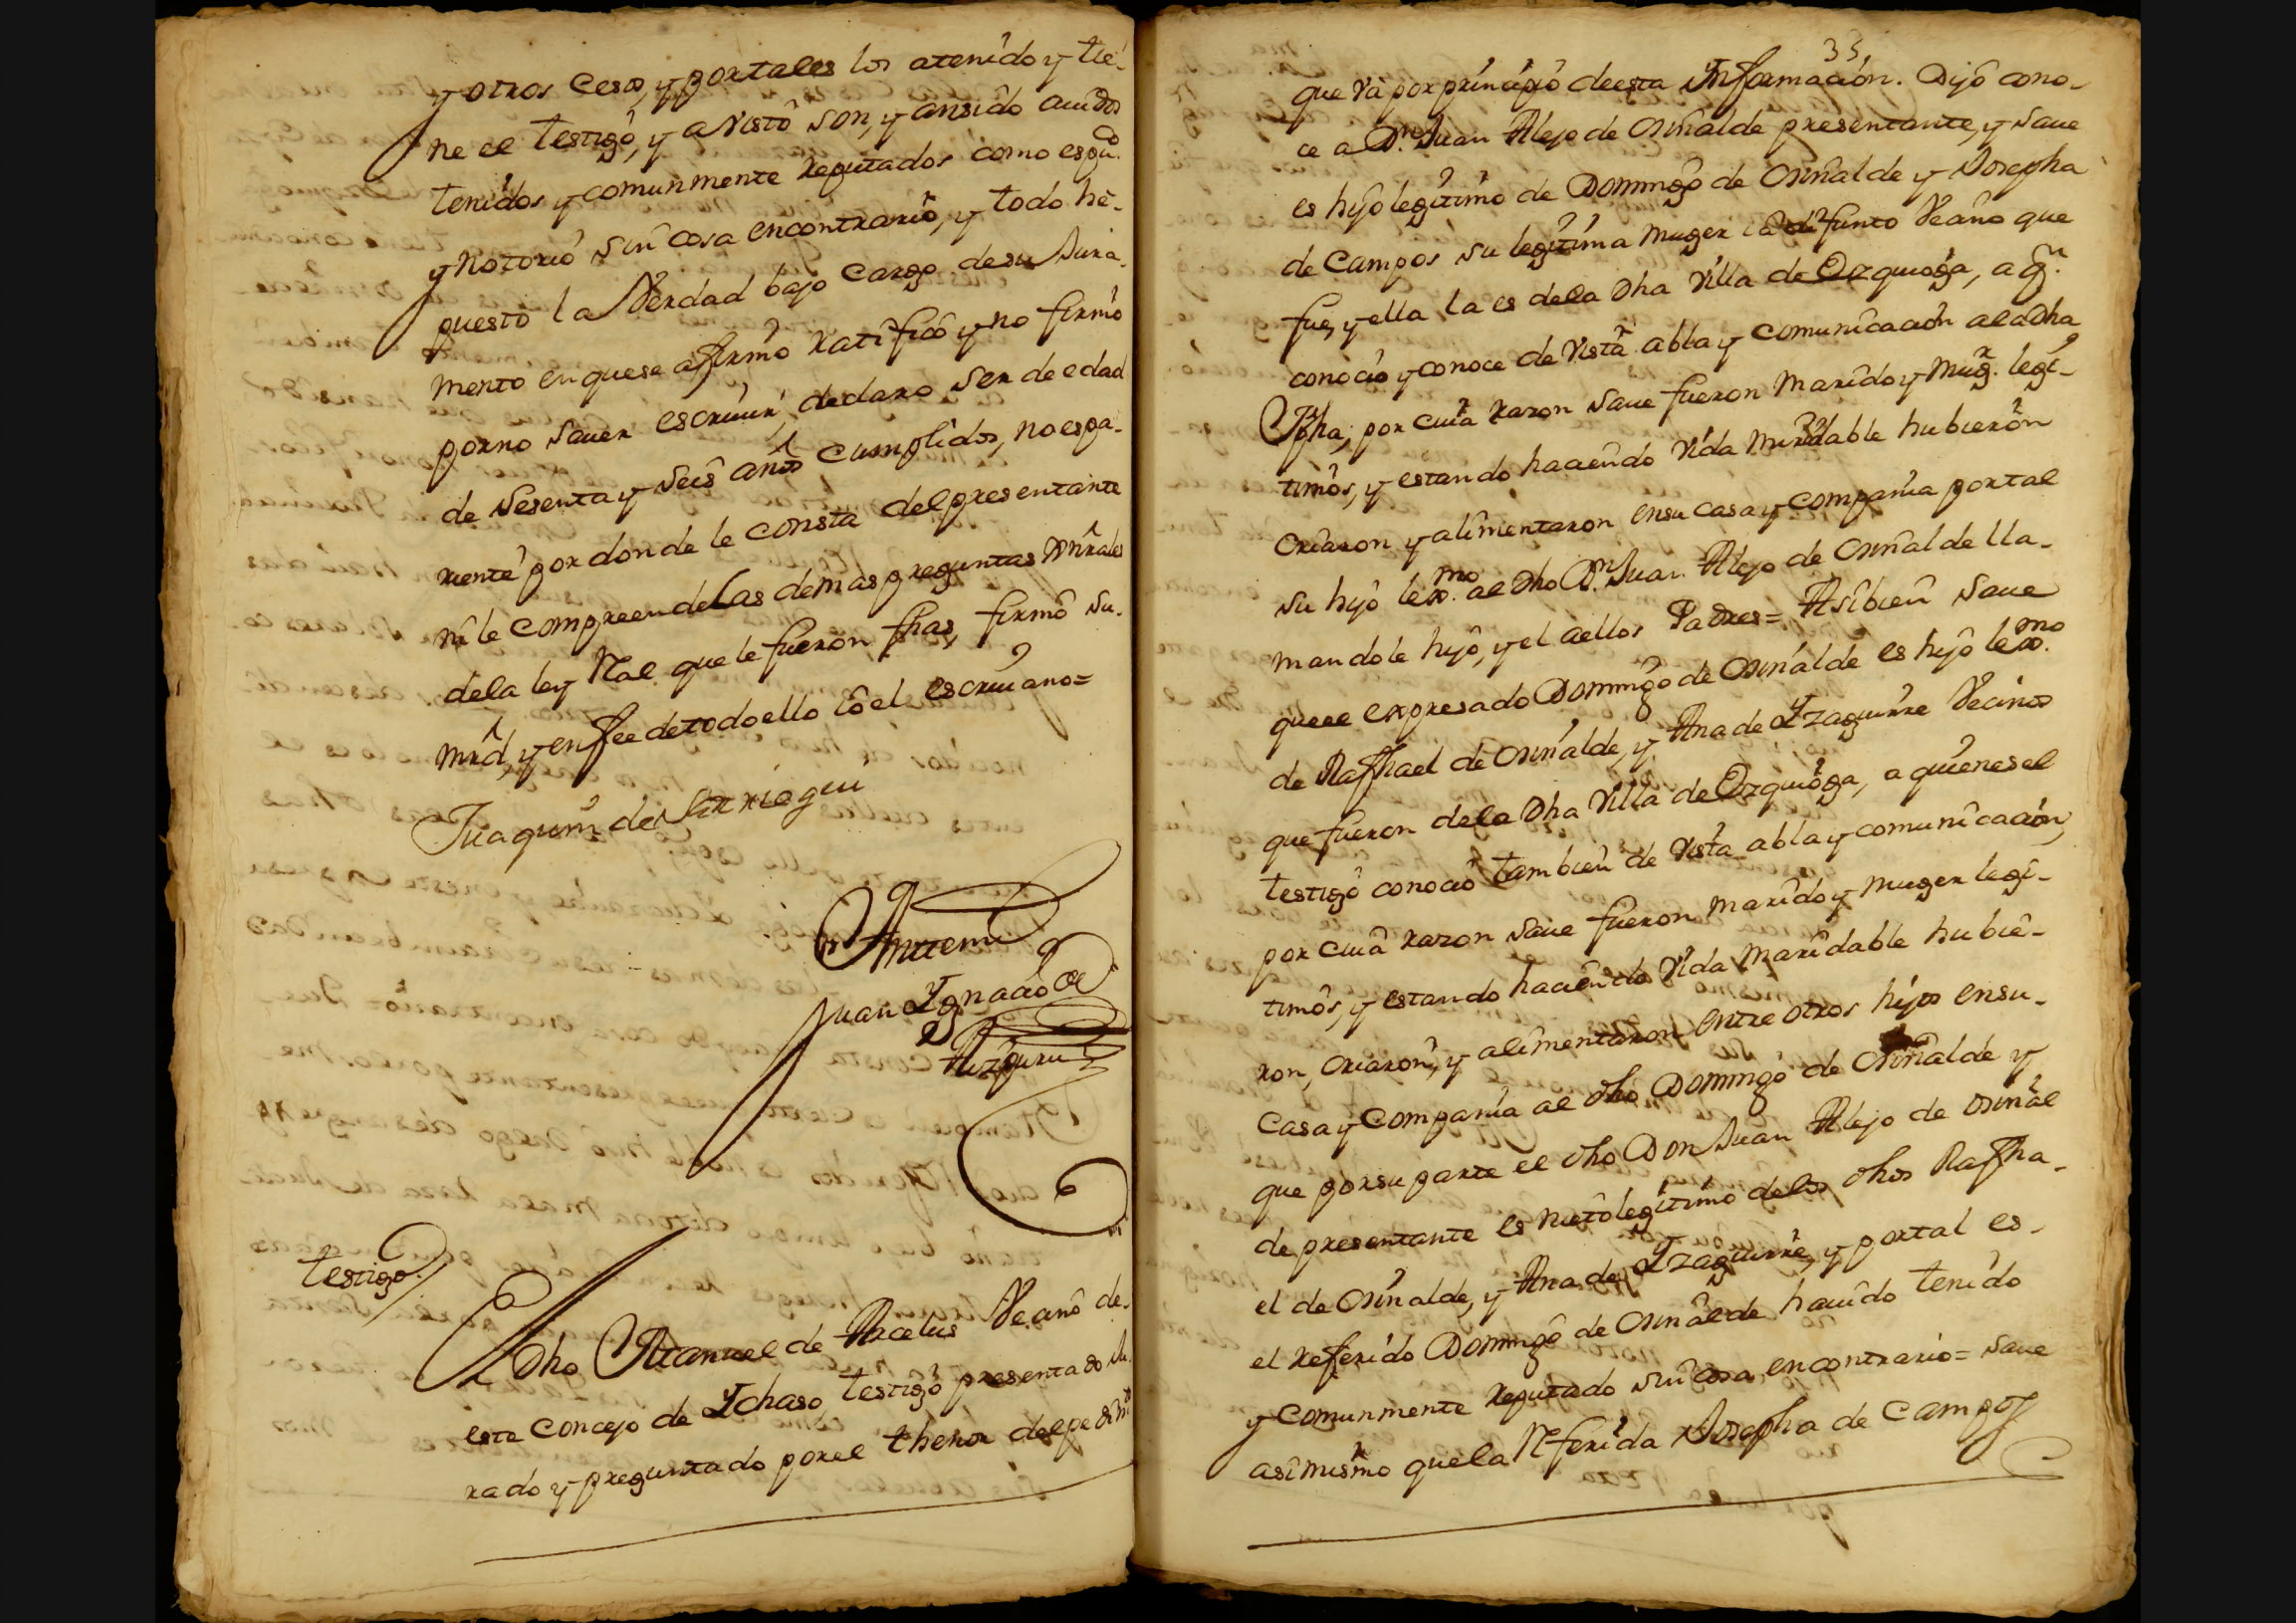 y otros ceso, y por tales los a tenido y tie-
ne el testigo, y a visto son, y an sido auidos
tenidos y comunmente reputados como es puco.
y notorio sin cosa en contrario, y todo he-
puesto la Verdad bajo cargo de su Jura-
mento en que se afirmo ratifico y no firmo
por no sauer escriuir, declaro ser de edad
de sesenta y seis años cumplidos, no es pa-
riente por donde le consta del presentante
ni le compreende las demas preguntas
de la ley Ral. que le fueron fhas, firmô su-
mrd, y en fee de todo ello Io el escriuano=
Juaquin de Larriategui
Antemi
Juan Ygnacio de
Aizpuru
Testigo
El dho Manuel de Arcelus Vecino de-
este Concejo de Ychaso, testigo presentado Ju-
rado y preguntado por el thenor del pedimto
35
que và por principio de esta Informacion. Dijo cono-
ce a Dn. Juan Alejo de Oruñalde presentante, y saue
es hijo legitimo de Domingo de Oruñalde y Josepha
de Campos su legitima muger la difunto Vecino que
fue, y ella la es de la dha Villa de Ozquioga, a qn.
conocio y conoce de vista abla y comunicacion a la dha
Jpha, por cuia razon saue fueron marido y mugr. legi-
timos, y estando haciendo vida maridable hubieron
criaron y alimentaron en su casa y compania por tal
su hijo lexmo. al dho Dn. Juan Alejo de Oruñalde lla-
mandole hijo, y el aellos Padres= Asi bien saue
que el expresado Domingo de Oruñalde es hijo lexmo.
de Raffael de Oruñalde, y Ana de Yzaguirre Vecinos
que fueron de la dha Villa de Ozquioga, a quienes el
testigo conocio tambien de vista abla y comunicacion,
por cuia razon saue fueron marido y muger legi-
timos, y estando haciendo vida maridable hubie-
ron, criaron, y alimentaron entre otros hijos en su-
casa y compania al dho Domingo de Oruñalde y
que por su parte el dho Don Juan Alejo de Oruñal
de presentante es nieto legitimo de los dhos Raffa-
el de Oruñalde, y Ana de Yzaguirre, y por tal es-
el referido Domingo de Oruñalde hauido tenido
y comunmente reputado sin cosa en contrario= saue
asi mismo que la Referida Josepha de Campos